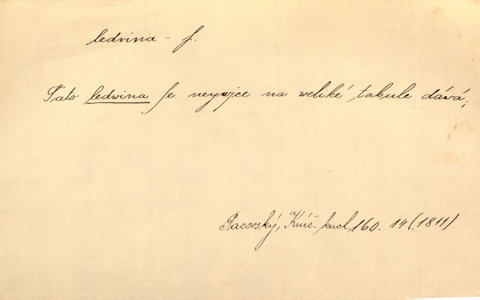 ledvina - f.
Tato ledwina se neywjce na weliké tabule dáwá;
Pacovský, Kniž. kuch. 160. 14 (1811)